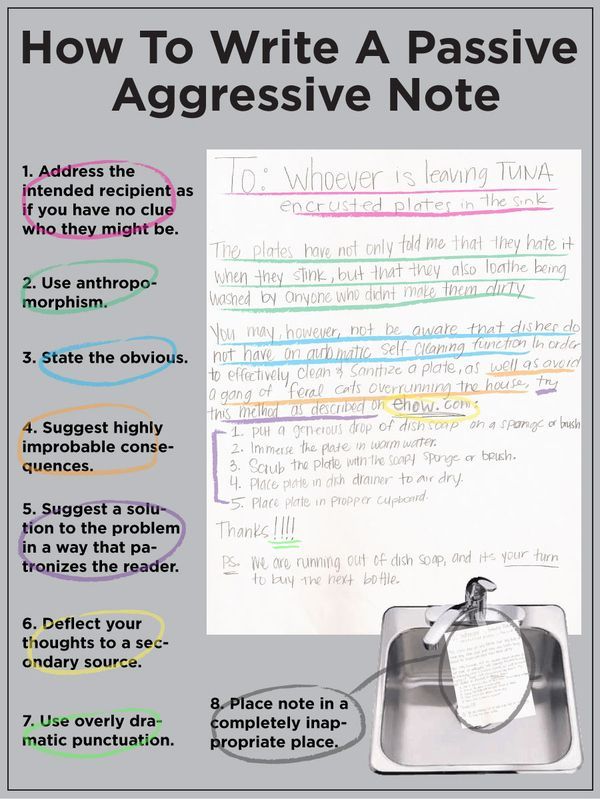 How To Write A Passive
Aggressive Note
1. Address the
intended recipient as
if you have no clue
who they might be.
2. Use anthropo-
morphism.
3. State the obvious.
4. Suggest highly
improbable conse-
quences.
5. Suggest a solu-
tion to the problem
in a way that pa-
tronizes the reader.
6. Deflect your
thoughts to a sec-
ondary source.
7. Use overly dra-
matic punctuation.
To: Whoever is leaving TUNA
encrusted plates in the sink
The plates have not only told me that they hate it
when they stink, but that they also loathe being
washed by anyone who didnt make them dirty
You may, however, not be aware that dishes do
not have an automatic self-cleaning function. In order
to effectively clean & sanitize a plate, as well as avoid
a gang of feral cats overrunning the house, try
this method as described on ehow.com:
1. Put a generous drop of dish soap on a sponge or brush
2. Immerse the plate in warm water.
3. Scrub the plate with the soapy sponge or brush.
4. Place plate in dish drainer to air dry.
5. Place plate in propper cupboard.
Thanks!!!!
Ps. We are running out of dish soap, and its your turn
to buy the next bottle.
8. Place note in a
completely inap-
propriate place.